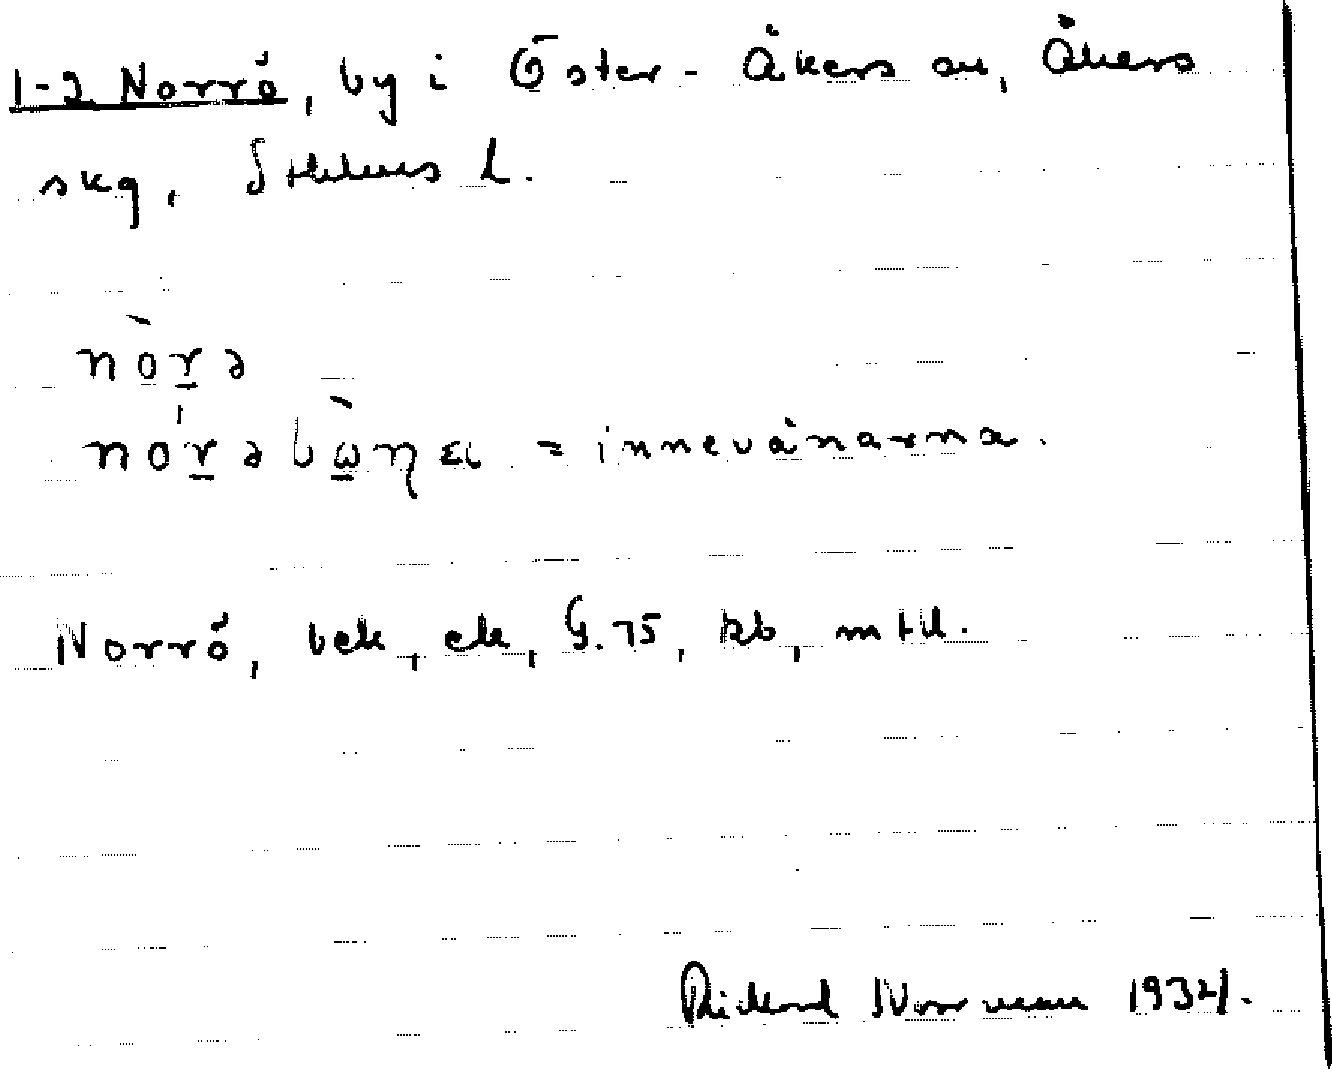 1-2 Norrö, by i Öster-Åkers sn, Åkers
skg, Sthlms l.
nòrə
nórəbὼηει = innevånarna.
Norrö, bek, ek, G.75, kb, mtl.
Rickard Norrman 1934.